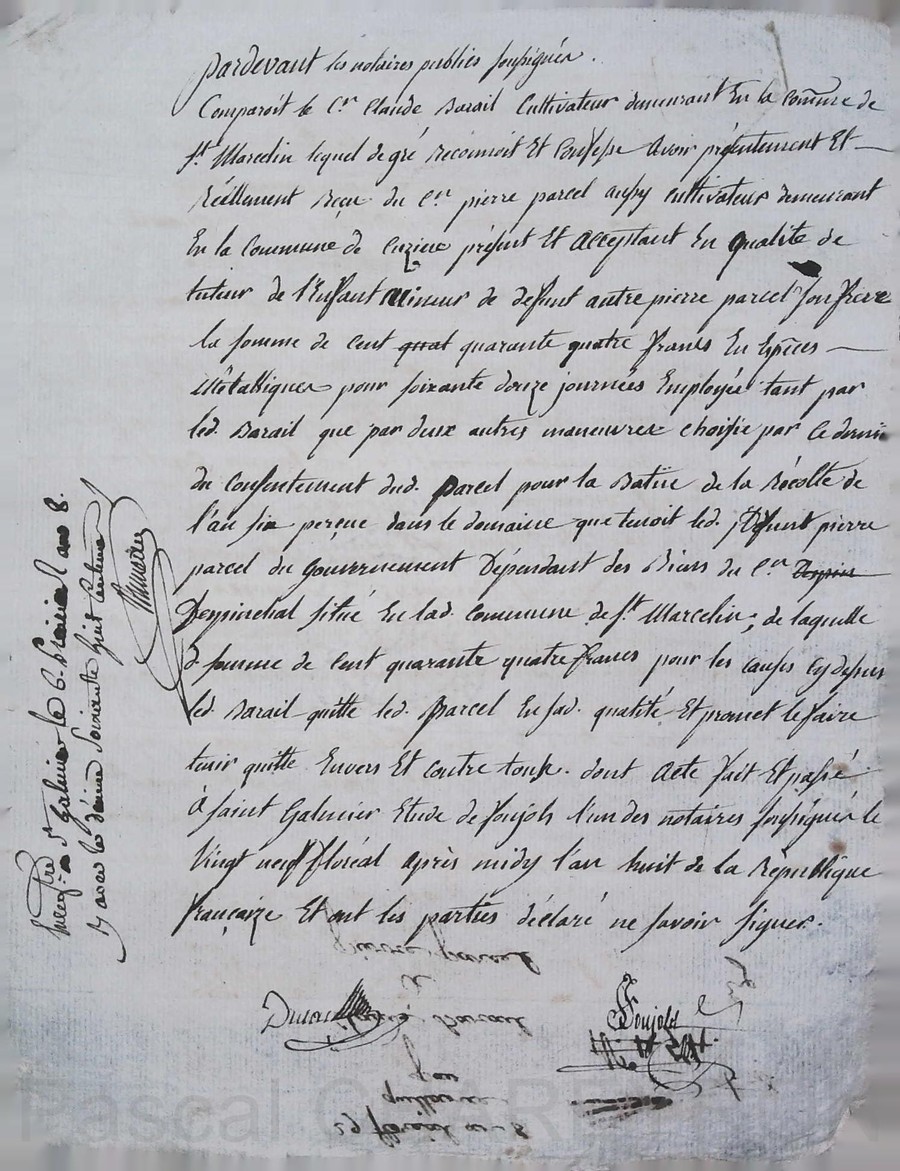 pardevant les notaires publics soussignés.
Comparoit le C.en Claude Barail Cultivateur demeurant En la Commune de
St. Marcelin lequel de gré Reconnoit Et Confesse Avoir présentement Et
Réellement Reçu du C.en pierre parcel aussy cultivateur demeurant
En la Commune de Cuzieu présent Et Acceptant En qualité de
tuteur de l'Enfant Mineur de defunt autre pierre parcel son frere
la somme de Cent quat quarante quatre francs En Espèces
Métalliques pour soixante douze journées Employée tant par
led. Barail que par deux autres maneuvres choisie par Ce dernier
du Consentement dud. parcel pour la Batüe de la Récolte de
l'an six perçue dans le domaine que tenoit led. Défunt pierre
parcel du Gouvernement Dépendant des Biens du C.en Despin
Despinchal situé En lad. Commune de St. Marcelin; de laquelle
d. somme de Cent quarante quatre francs pour les causes Cy dessus
led. Barail quitte led. Parcel En sad. qualité Et promet le faire
tenir quitte Envers Et contre tous. dont Acte fait Et passé
à Saint Galmier Etude de Joujols l'un des notaires soussignés le
Vingt neuf floréal après midy l'an huit de la République
française Et ont les parties déclaré ne savoir signer.
Enregistré à St. Galmier le 6. prairial an 8.
Pierre parcel
Barail
29 floréal an 8